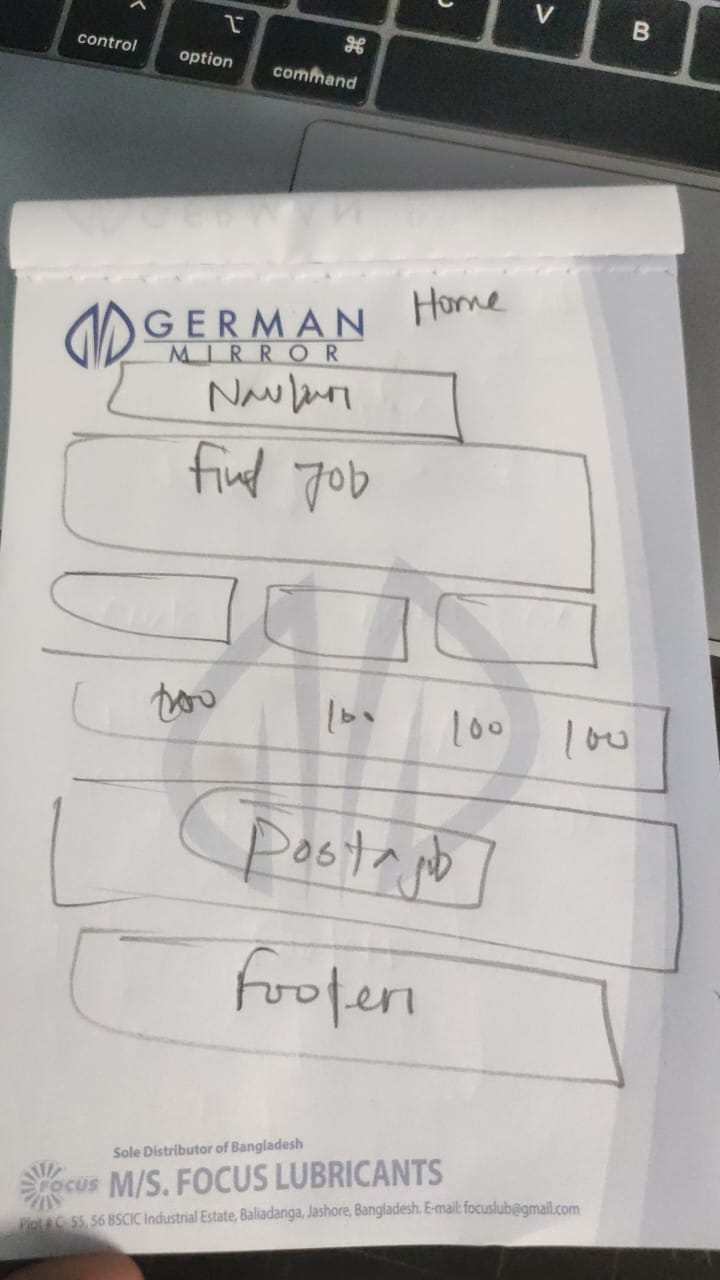 control
option
⌘
command
V
B
GERMAN
MIRROR
Home
Navbar
find Job
100
100
100
Post a job
Footer
Sole Distributor of Bangladesh
FOCUS M/S. FOCUS LUBRICANTS
Plot # C- 55, 56 BSCIC Industrial Estate, Baliadanga, Jashore, Bangladesh. E-mail: focuslub@gmail.com